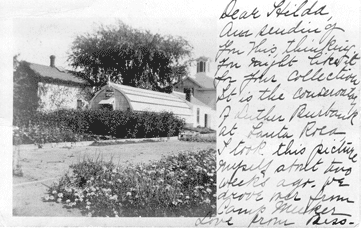 Dear Hilda,
Am sending
you this thinking
you might like it
for your collection
It is the conservato
of Luther Burbank
at Santa Rosa
I took this picture
myself about two
weeks ago. We
drove over from
Camp Meeker
Love from Bess-